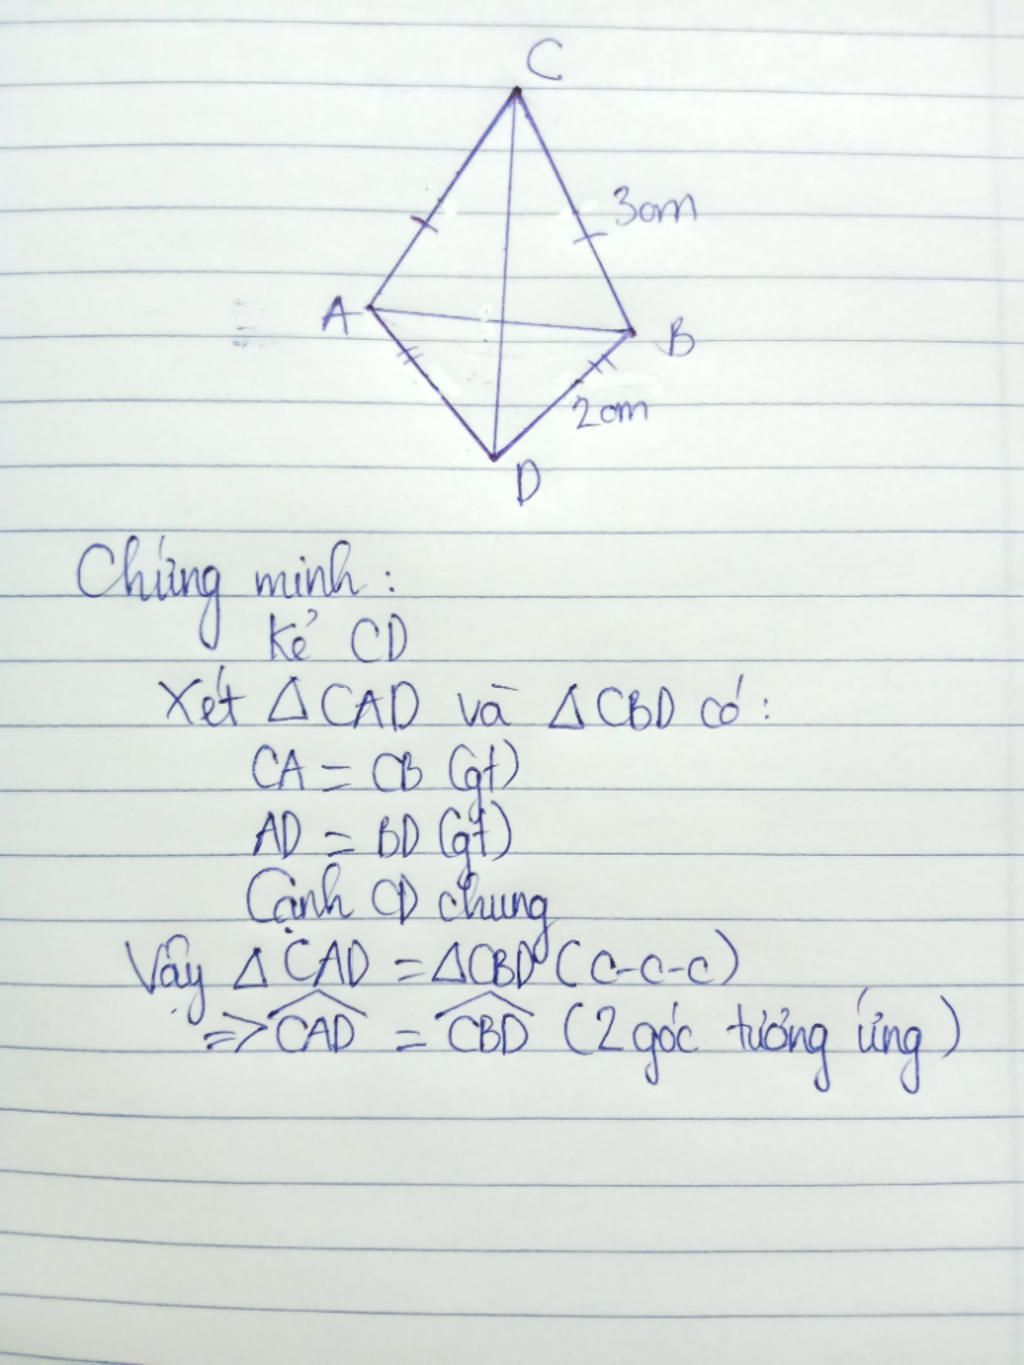 C
3cm
A
B
2cm
D
Chứng minh:
Kẻ CD
Xét △CAD và △CBD có:
CA = CB (gt)
AD = BD (gt)
Cạnh CD chung
Vậy △CAD = △CBD (c-c-c)
=> \widehat{CAD} = \widehat{CBD} (2 góc tương ứng)